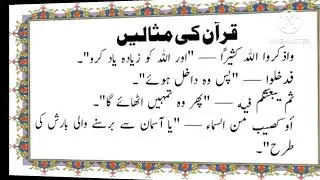 قرآن کی مثالیں
واذکروا الله کثیراً — "اور اللہ کو زیادہ یاد کرو"۔
فدخلوا — "پس وہ داخل ہوئے"۔
ثم یبعثکم فیه — "پھر وہ تمہیں اٹھائے گا"۔
أو کصیب من السماء — "یا آسمان سے برسنے والی بارش کی
طرح"۔